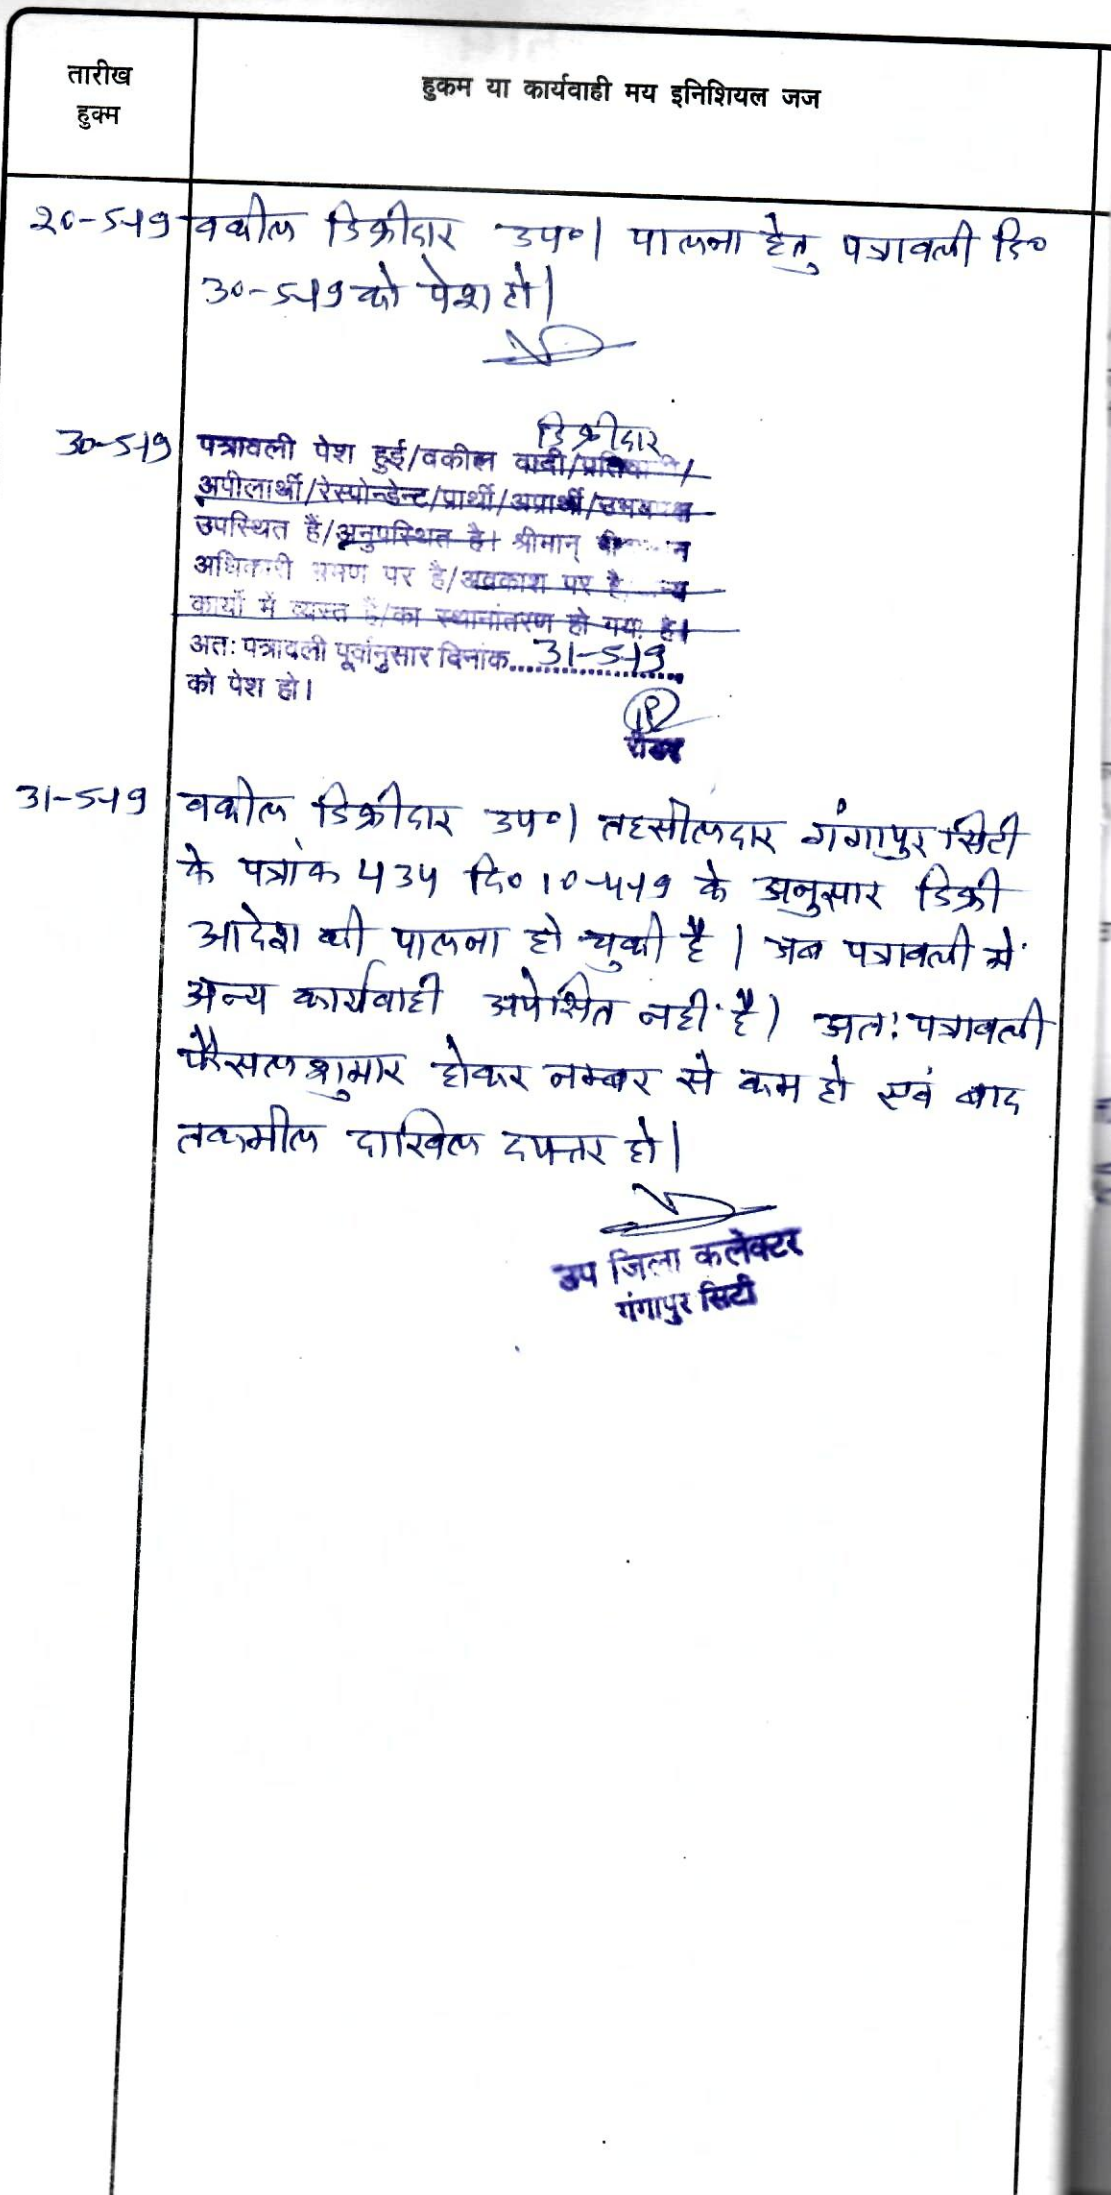 तारीख
हुक्म
हुकम या कार्यवाही मय इनिशियल जज
20-5-19 वकील डिक्रीदार उप०। पालना हेतु पत्रावली दि०
30-5-19 को पेश हो।
डिक्रीदार
30-5-19 पत्रावली पेश हुई/वकील वादी/प्रतिवादी/
अपीलार्थी/रेस्पोन्डेन्ट/प्रार्थी/अप्रार्थी/उभय
उपस्थित हैं/अनुपस्थित है। श्रीमान्
अधिकारी भ्रमण पर है/अवकाश पर है
कार्यो में व्यस्त है/का स्थानांतरण हो गया है।
अतः पत्रावली पूर्वानुसार दिनांक....31-5-19....
को पेश हो।
रीडर
31-5-19 वकील डिक्रीदार उप०। तहसीलदार गंगापुर सिटी
के पत्रांक 434 दि० 10-4-19 के अनुसार डिक्री
आदेश की पालना हो चुकी है। अब पत्रावली में
अन्य कार्यवाही अपेक्षित नहीं है। अतः पत्रावली
फैसल शुमार होकर नम्बर से कम हो एवं बाद
तकमील दाखिल दफ्तर हो।
उप जिला कलेक्टर
गंगापुर सिटी